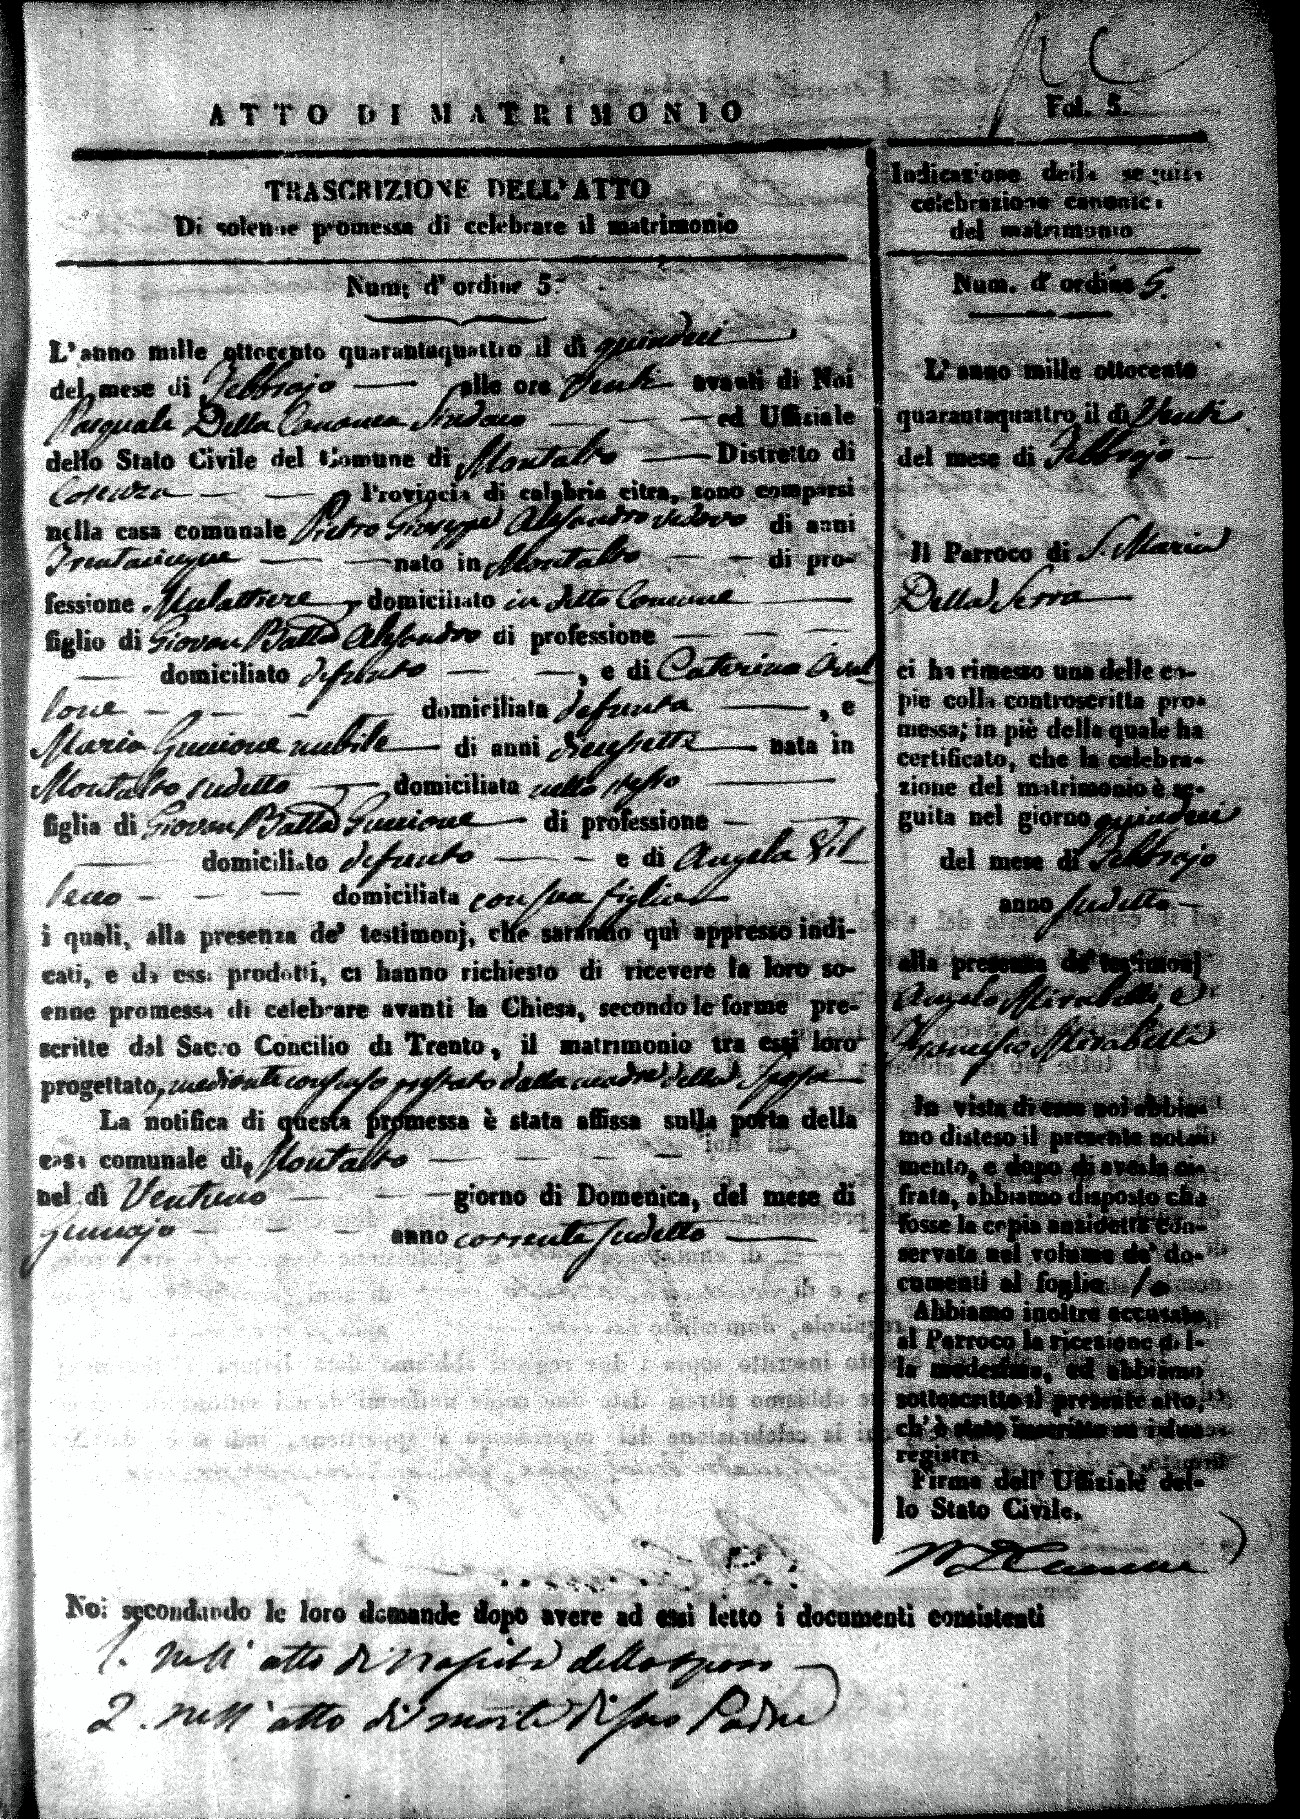 ATTO DI MATRIMONIO
Fol. 5.
TRASCRIZIONE DELL'ATTO
Di solenne promessa di celebrare il matrimonio
Num. d'ordine 5.
L'anno mille ottocento quarantaquattro il dì quindeci
del mese di Febbrajo alle ore Venti avanti di Noi
Pasquale Della Cananea Sindaco ed Uffiziale
dello Stato Civile del Comune di Montalto Distretto di
Cosenza Provincia di calabria citra, sono comparsi
nella casa comunale Pietro Giuseppe Alessandro vedovo di anni
Trentacinque nato in Montalto di pro-
fessione Mulattiere domiciliato in detto Comune
figlio di Giovan Batta Alessandro di professione
domiciliato defunto , e di Caterina
lone domiciliata defunta , e
Maria Guccione nubile di anni diecissette nata in
Montalto sudetto domiciliata nello stesso
figlia di Giovan Batta Guccione di professione
domiciliato defunto e di Angela Vil
lecco domiciliata con sua figlia
i quali, alla presenza de' testimonj, che saranno quì appresso indi-
cati, e da essi prodotti, ci hanno richiesto di ricevere la loro so-
enne promessa di celebrare avanti la Chiesa, secondo le forme pre-
scritte dal Sacro Concilio di Trento, il matrimonio tra essi loro
progettato, mediante consenso prestato dalla madre della Sposa
La notifica di questa promessa è stata affissa sulla porta della
casa comunale di Montalto
nel dì Ventuno giorno di Domenica, del mese di
Gennajo anno corrente sudetto
Indicazione della seguita
celebrazione canonica
del matrimonio
Num. d'ordine 5.
L'anno mille ottocento
quarantaquattro il dì Venti
del mese di Febbrajo
Il Parroco di S. Maria
Della Serra
ci ha rimesso una delle co-
pie colla controscritta pro-
messa; in piè della quale ha
certificato, che la celebra-
zione del matrimonio è se-
guita nel giorno quindeci
del mese di Febbrajo
anno sudetto
alla presenza de' testimonj
Angelo Mirabelli, e
Francesco Mirabella
In vista di essa noi abbia-
mo disteso il presente notam-
mento, e dopo di averla ci-
frata, abbiamo disposto che
fosse la copia anzidetta con-
servata nel volume de' do-
cumenti al foglio 10
Abbiamo inoltre accusata
al Parroco la ricezione del-
la medesima, ed abbiamo
sottoscritto il presente atto,
ch'è stato inscritto su i due
registri
Firma dell' Uffiziale del-
lo Stato Civile.
Noi secondando le loro domande dopo avere ad essi letto i documenti consistenti
1. Nell' atto di nascita dello sposo
2. Nell' atto di morte di suo Padre